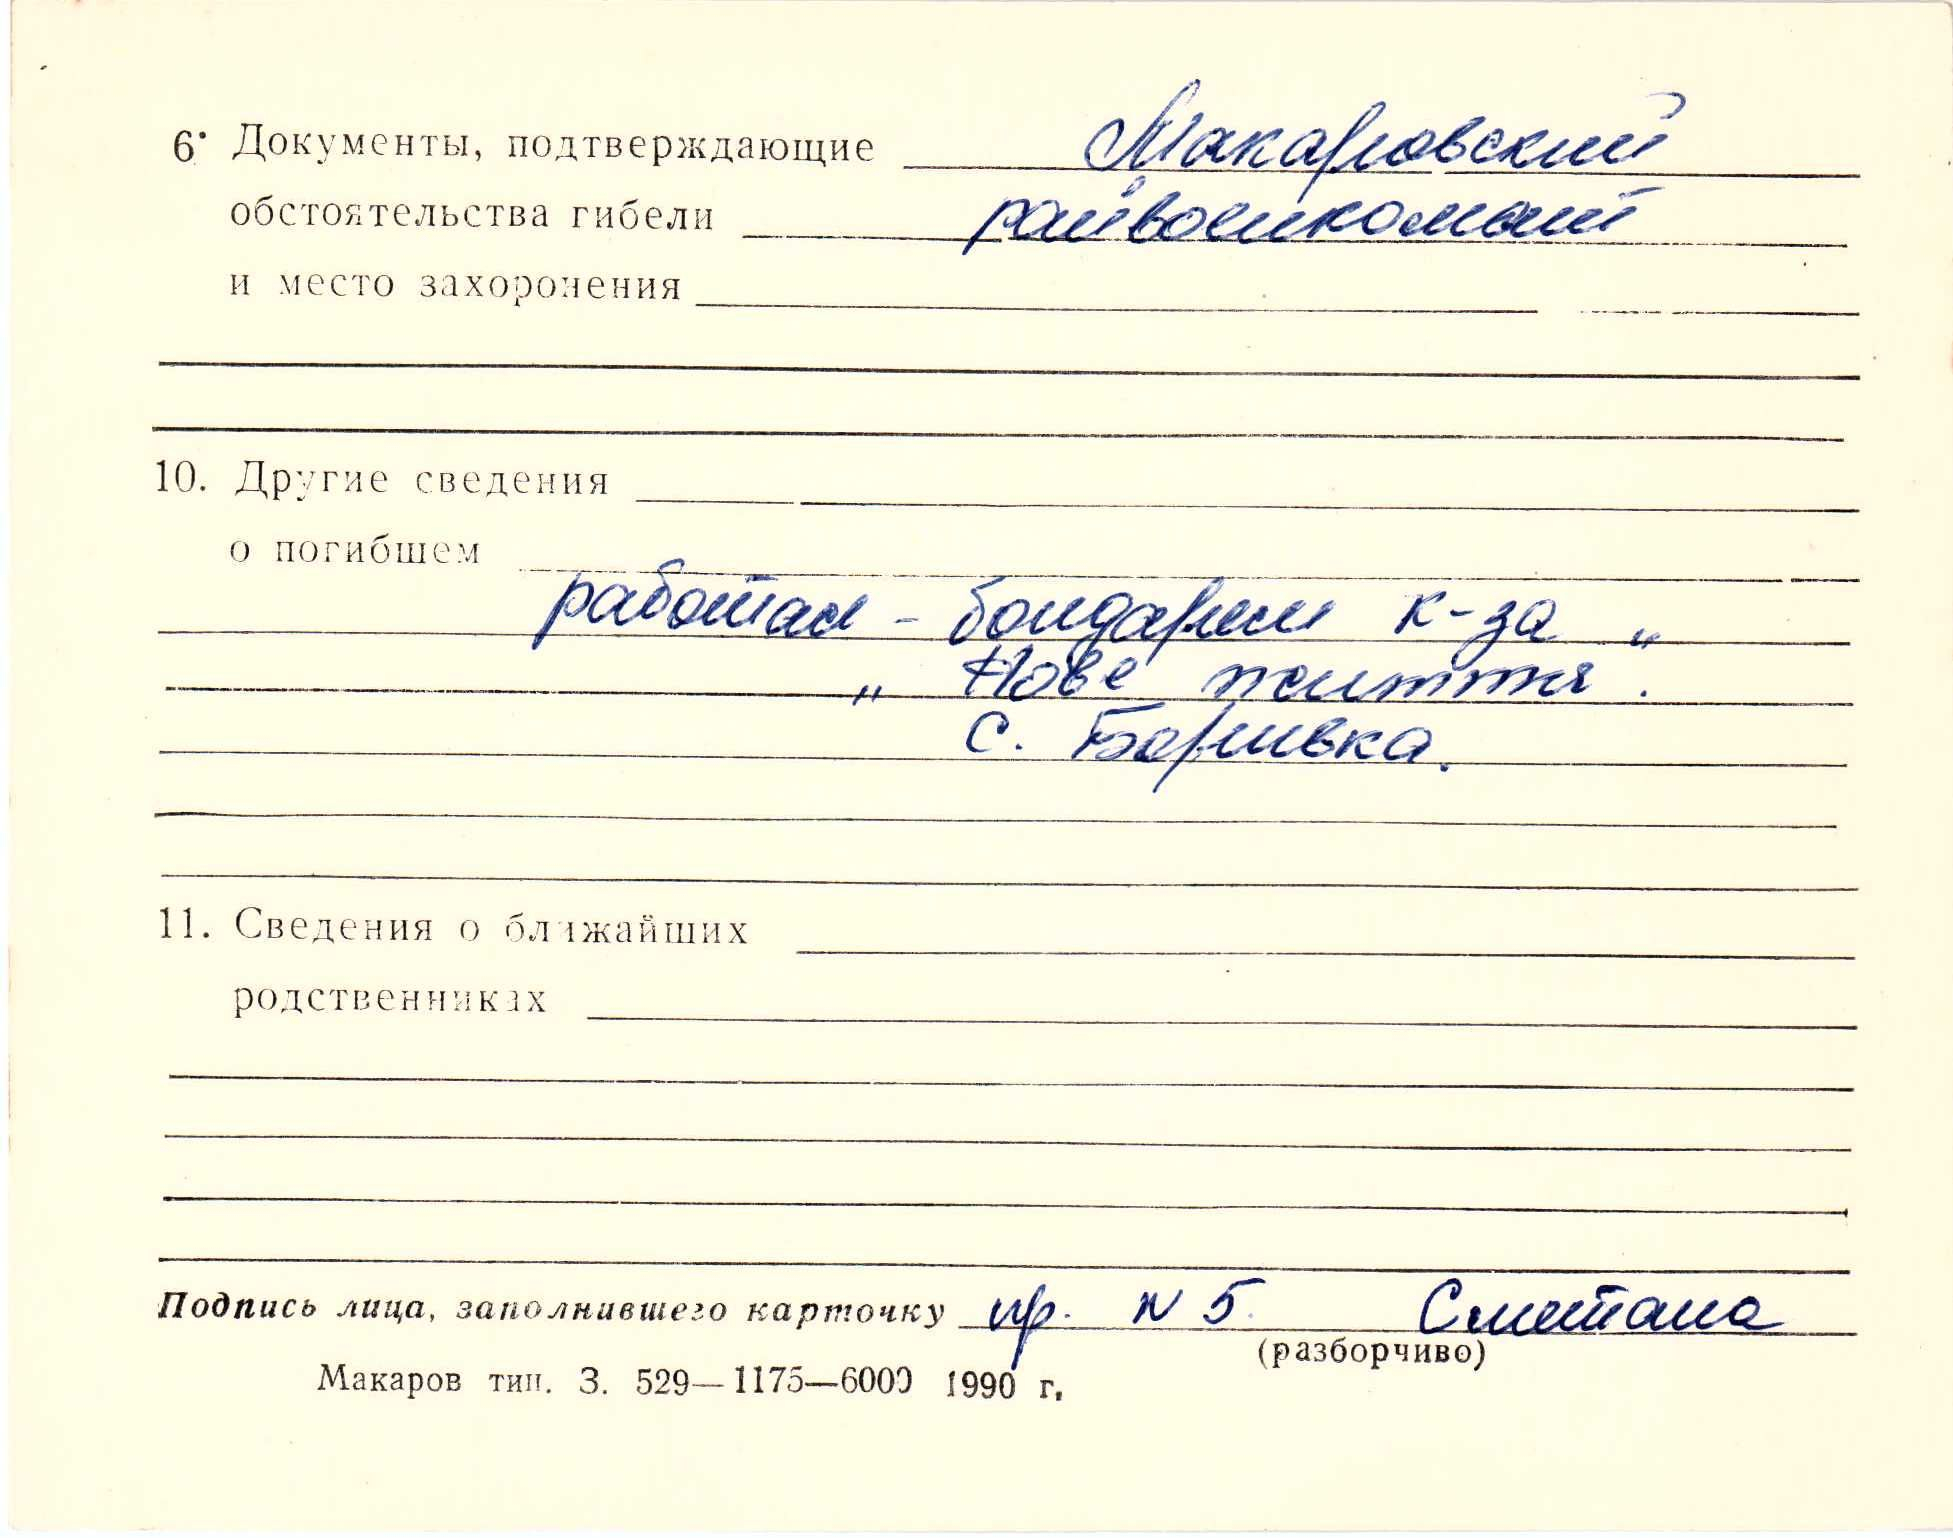 6. Документы, подтверждающие Макаровский
обстоятельства гибели райвоенкомат
и место захоронения
10. Другие сведения
о погибшем
работал - бондарем к-за „
„ Нове життя".
с. Боривка.
11. Сведения о ближайших
родственниках
Подпись лица, заполнившего карточку пр. N 5. Сметана
(разборчиво)
Макаров тип. З. 529—1175—6000 1990 г.